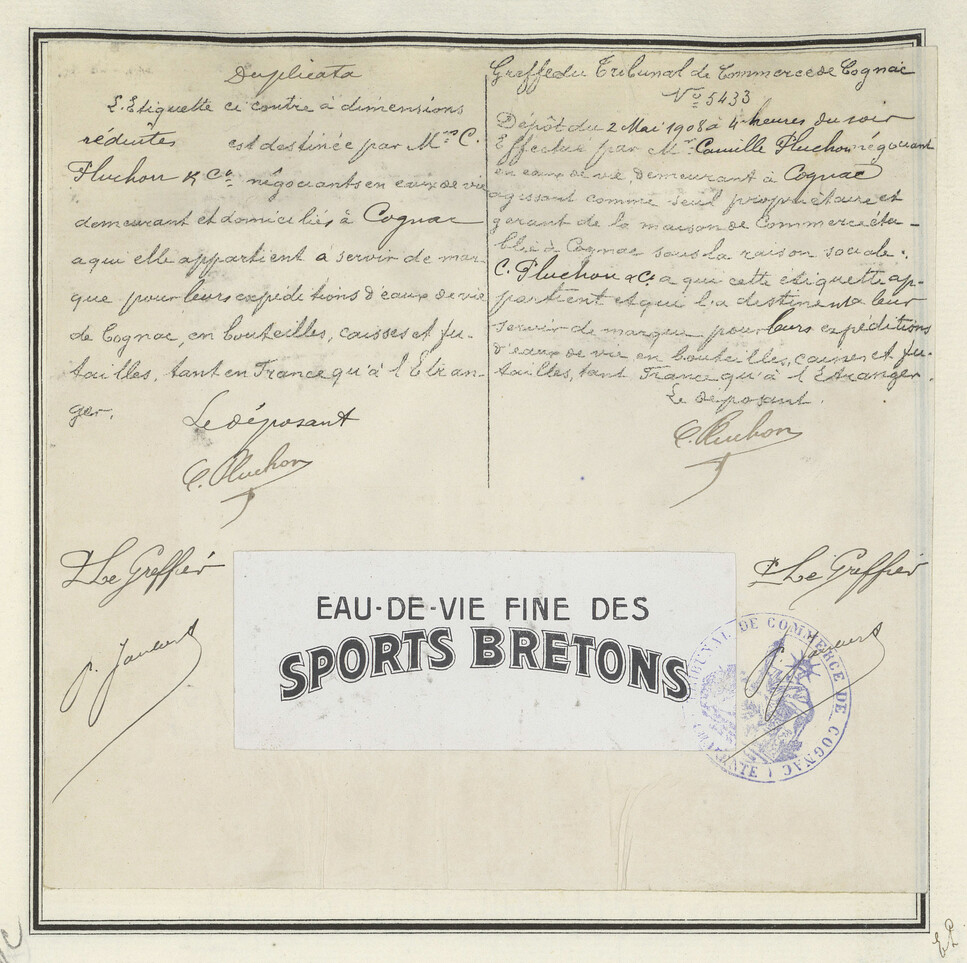 Duplicata
L'Etiquette ci contre à dimensions
réduites est destinée par Mrs C.
Pluchon & Co négociants en eaux de vie
demeurant et domiciliés à Cognac
a qui elle appartient a servir de mar-
que pour leurs expéditions d'eaux de vie
de Cognac, en bouteilles, caisses et fu-
tailles, tant en France qu'à l'Etran-
ger.
Le déposant
C. Pluchon
Greffe du Tribunal de Commerce de Cognac
No 5433
Dépôt du 2 Mai 1908 à 4 heures du soir
Effectué par Mr Camille Pluchon négociant
en eaux de vie, demeurant à Cognac
agissant comme seul propriétaire et
gerant de la maison de Commerce éta-
blie à Cognac sous la raison sociale :
C. Pluchon & Co a qui cette étiquette ap-
partient et qui l'a destinent a leur
servir de marque pour leurs expéditions
d'eaux de vie en bouteilles, caisses et fu-
tailles, tant France qu'à l'Etranger.
Le déposant.
C. Pluchon
Le Greffier
Le Greffier
EAU-DE-VIE FINE DES
SPORTS BRETONS
TRIBUNAL DE COMMERCE DE COGNAC
CHARENTE